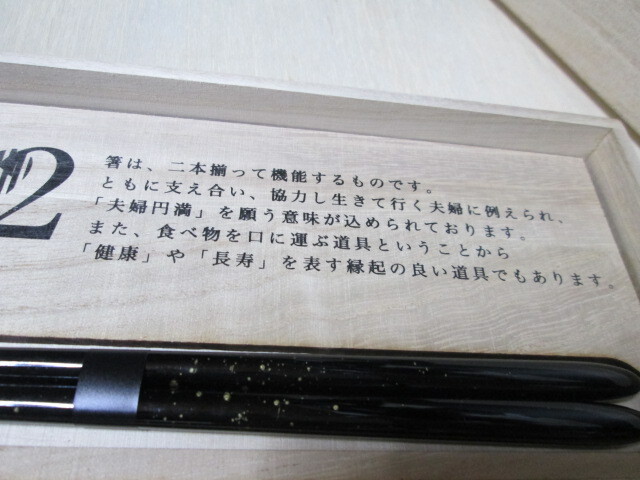 2
箸は、二本揃って機能するものです。
ともに支え合い、協力し生きて行く夫婦に例えられ、
「夫婦円満」を願う意味が込められております。
また、食べ物を口に運ぶ道具ということから
「健康」や「長寿」を表す縁起の良い道具でもあります。